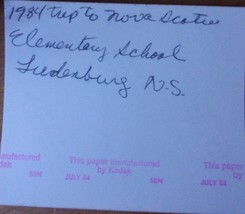 1984 trip to Nova Scotia
Elementary School
Ludenburg N.S.
nufactured This paper manufactured This paper
dak by Kodak by
JULY 84 JULY 84